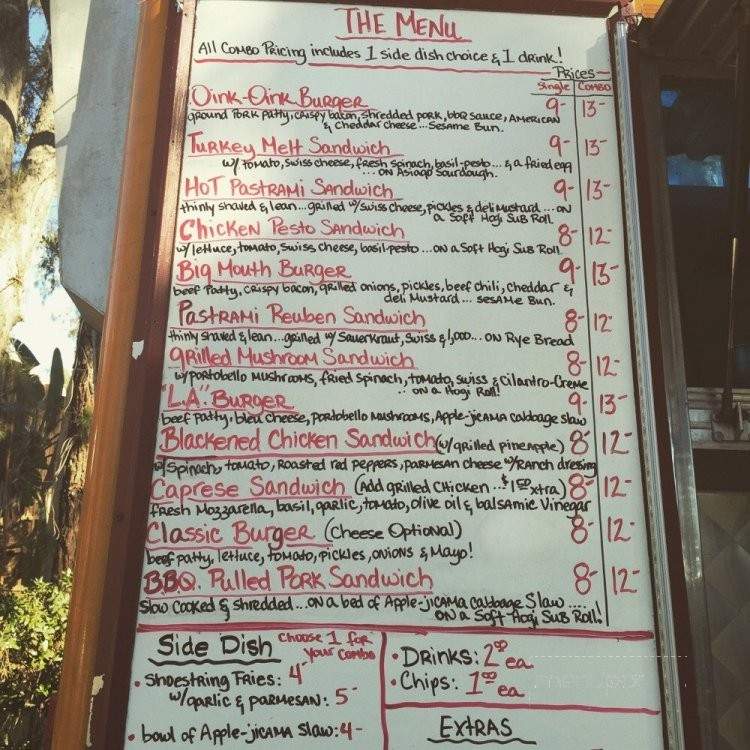 THE MENU
All Combo Pricing includes 1 side dish choice & 1 drink!
Prices
Single Combo
Oink-Oink Burger 9- 13-
ground Pork patty, crispy bacon, shredded pork, bbq sauce, AMERICAN
& cheddar cheese...Sesame Bun.
Turkey Melt Sandwich 9- 13-
w/ tomato, swiss cheese, fresh spinach, basil-pesto... & a fried egg
...on Asiago Sourdough.
HOT Pastrami Sandwich 9- 13-
thinly shaved & lean...grilled w/ swiss cheese, pickles & deli mustard...on
a Soft Hogi Sub Roll.
Chicken Pesto Sandwich 8- 12-
w/ lettuce, tomato, swiss cheese, basil-pesto...on a Soft Hogi Sub Roll
Big Mouth Burger 9- 13-
beef Patty, crispy bacon, grilled onions, pickles, beef chili, cheddar &
deli Mustard... sesame Bun.
Pastrami Reuben Sandwich 8- 12-
thinly shaved & lean...grilled w/ Sauerkraut, Swiss & 1,000...on Rye Bread
Grilled Mushroom Sandwich 8- 12-
w/ portobello mushrooms, fried Spinach, tomato, swiss & Cilantro-Creme
..on a Hogi Roll!
"L.A." Burger 9- 13-
beef patty, bleu cheese, portobello mushrooms, Apple-jicama cabbage slaw
Blackened Chicken Sandwich (w/ grilled pineapple) 8- 12-
w/ Spinach, tomato, Roasted red peppers, parmesan cheese w/ Ranch dressing
Caprese Sandwich (Add grilled chicken...$1.50 xtra) 8- 12-
fresh Mozzarella, basil, garlic, tomato, olive oil & balsamic Vinegar
Classic Burger (Cheese Optional) 8- 12-
beef patty, lettuce, tomato, pickles, onions & Mayo!
B.B.Q. Pulled Pork Sandwich 8- 12-
Slow cooked & shredded...on a bed of Apple-jicama cabbage Slaw....
on a Soft Hogi Sub Roll!
Side Dish Choose 1 for
your combo
• Shoestring Fries: 4-
w/ garlic & parmesan: 5-
• bowl of Apple-jicama slaw: 4-
• Drinks: 2.00 ea
• Chips: 1.00 ea
EXTRAS